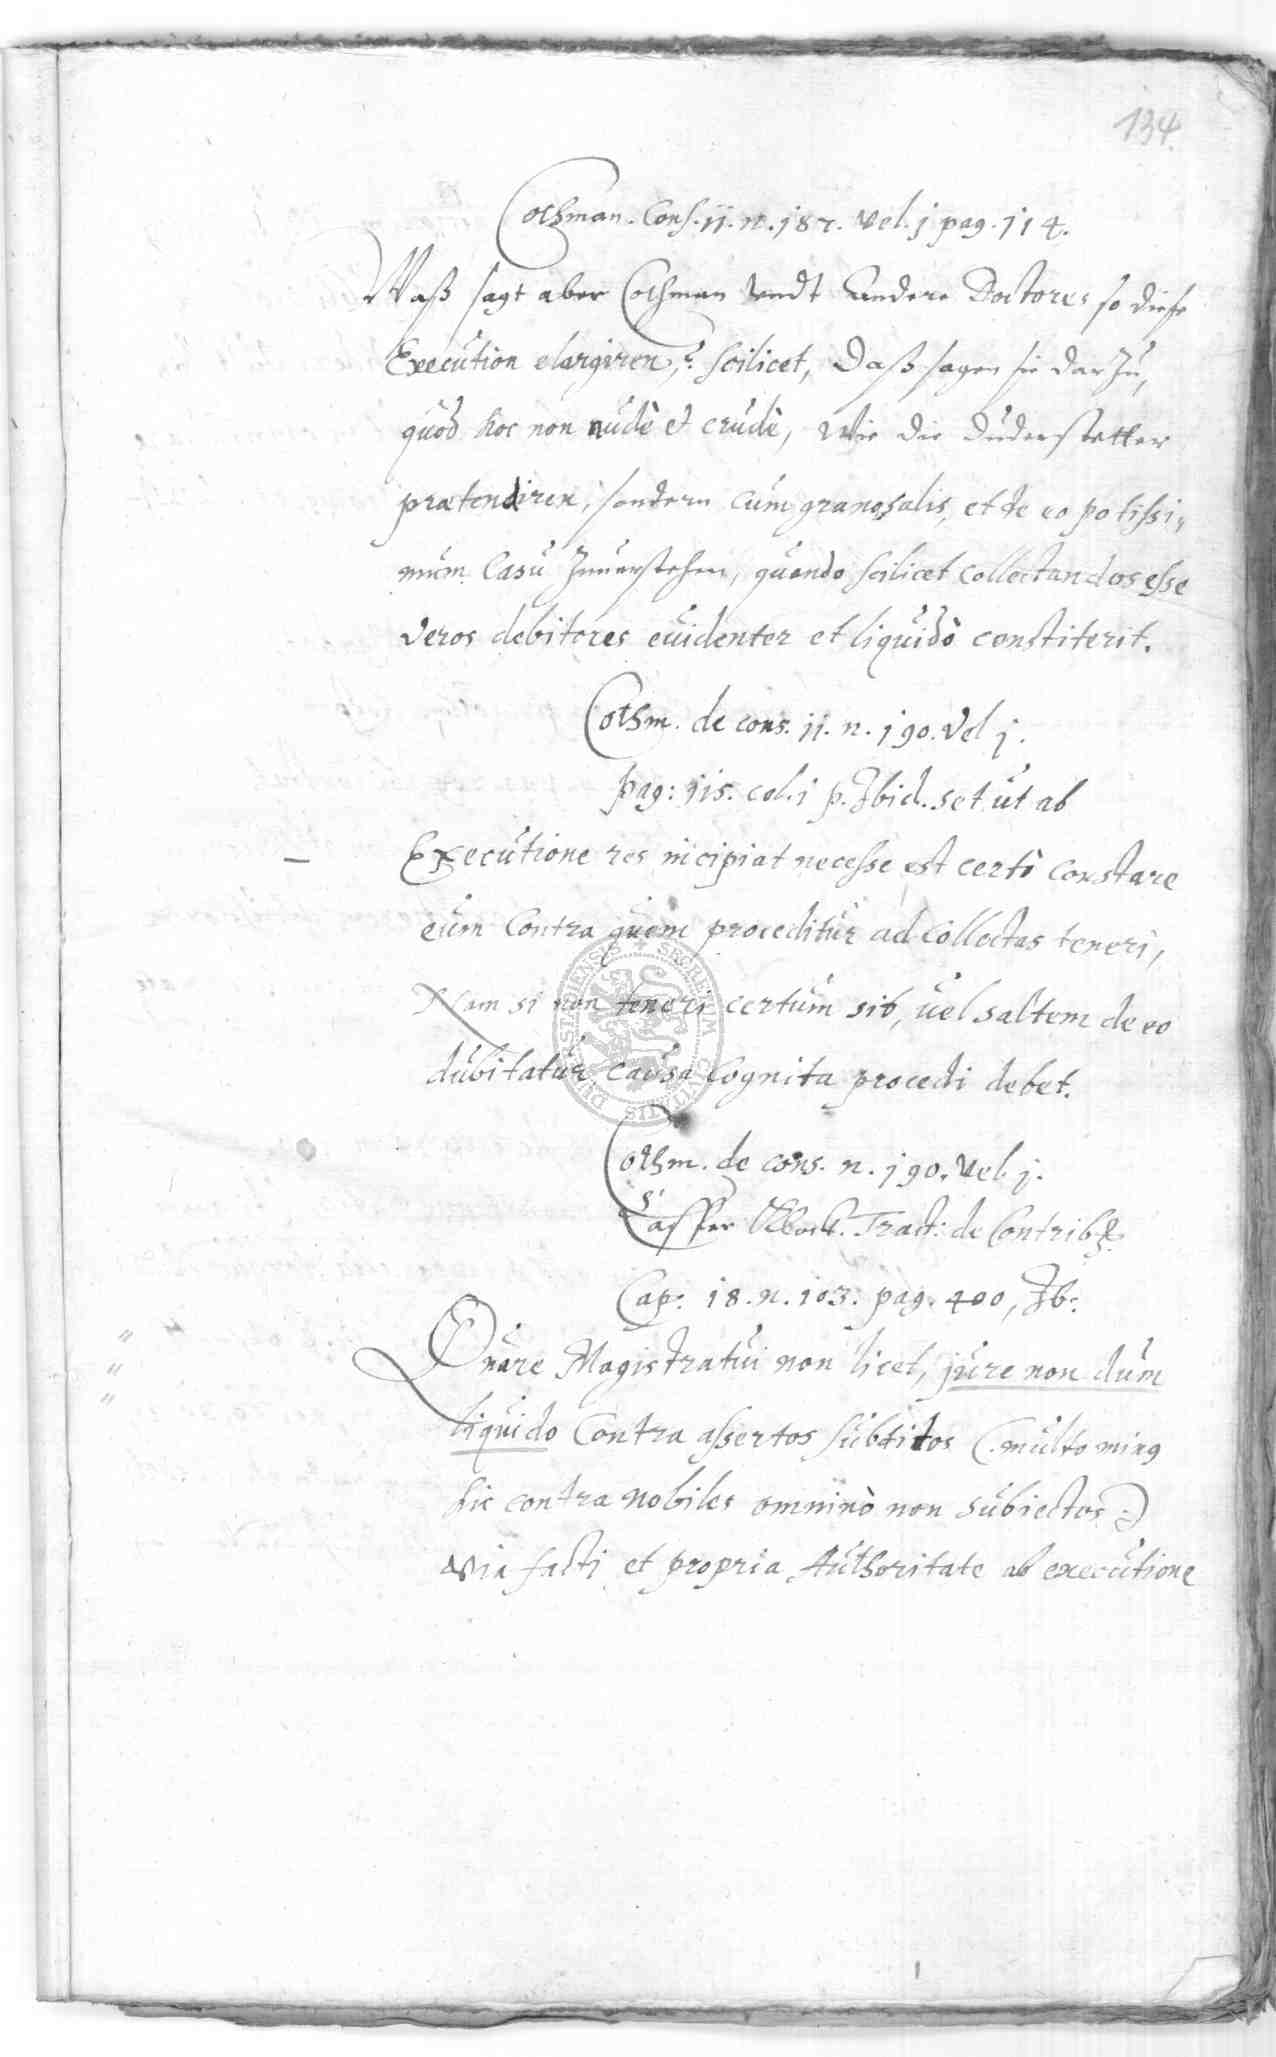 134.
Cothman. Cons. ii. n. j87. vel. j pag. 114.
Waß sagt aber Cothman vndt Andere Doctores so diese
Execution elargiren,? scilicet, Daß sagen sie darzu,
quod hoc non nudè et crudè, wie die Duderstetter
praetendiren, sondern cum grano salis, et de eo potissi„
mum Casu Zuuerstehen, quando scilicet collectandos esse
veros debitores euidenter et liquidò constiterit.
Cothm. de cons. ii. n. j90. vel j.
pag: jis. col. i p. Ibid. set ut ab
Executione res incipiat necesse est certò constare
eum Contra quem proceditur ad Collectas teneri,
Nam si non teneri certum sit, uel saltem de eo
dubitatur causa Cognita procedi debet.
Cothm. de cons. n. j90. vel. j.
Casper Klock. Tract: de Contrib.
Cap: 18. n. 103. pag. 400, Ib:
Quare Magistratui non licet, jure non dum
liquido Contra assertos subditos (: multo minus
hic contra nobiles omninò non subiectos :)
via facti et propria Authoritate ab executione
SECRETUM CIVITATIS DUDERSTADIENSIS